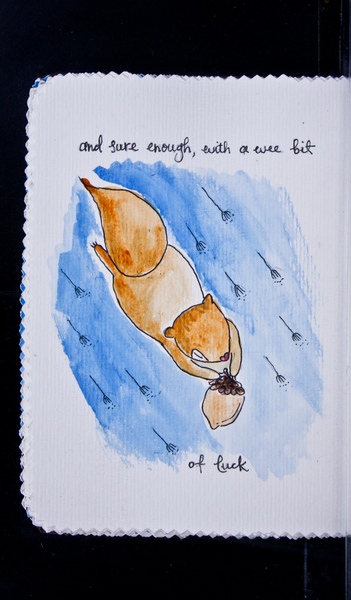 and sure enough, with a wee bit
of luck